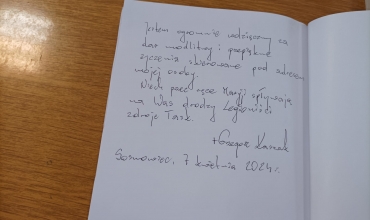 Jestem ogromnie wdzięczny za
dar modlitwy i przepiękne
życzenia skierowane pod adresem
mojej osoby.
Niech przez ręce Maryi spływają
na Was drodzy Legioniści
zdroje Łask.
+Grzegorz Kaszak
Sosnowiec, 7 kwietnia 2024 r.